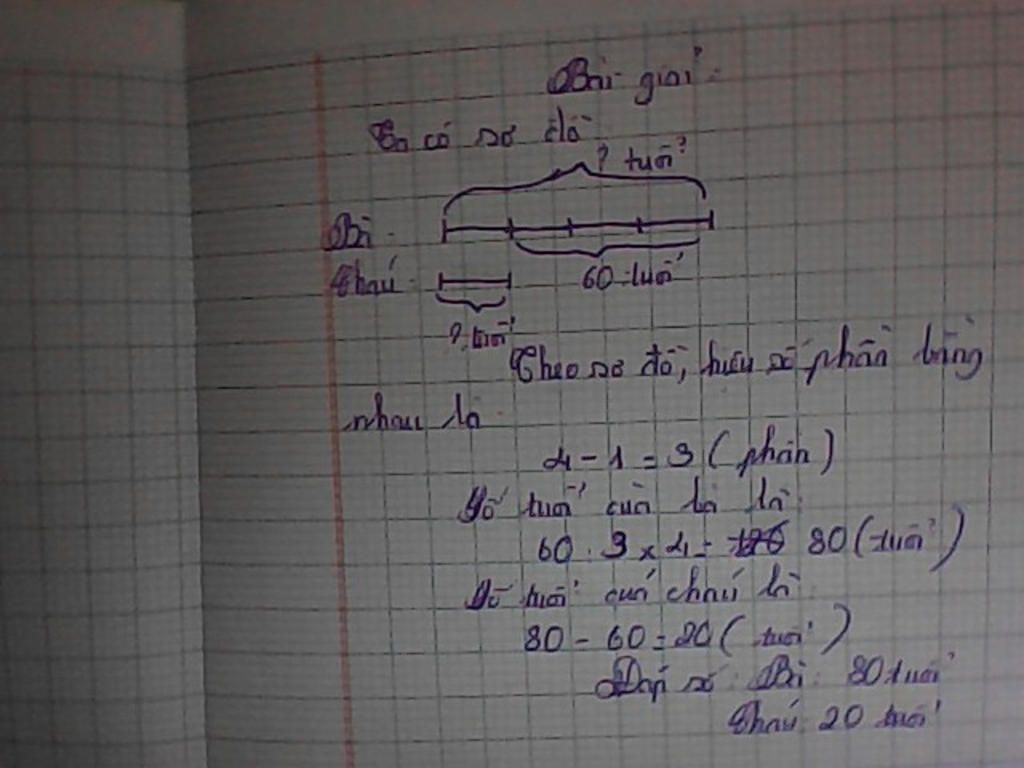 Bài giải:
Ta có sơ đồ:
? tuổi
Bà:
60 tuổi
Cháu:
? tuổi
Theo sơ đồ, hiệu số phần bằng
nhau là:
4 - 1 = 3 (phần)
Số tuổi của bà là:
60 : 3 x 4 = 80 (tuổi)
Số tuổi của cháu là:
80 - 60 = 20 (tuổi)
Đáp số: Bà: 80 tuổi
Cháu: 20 tuổi